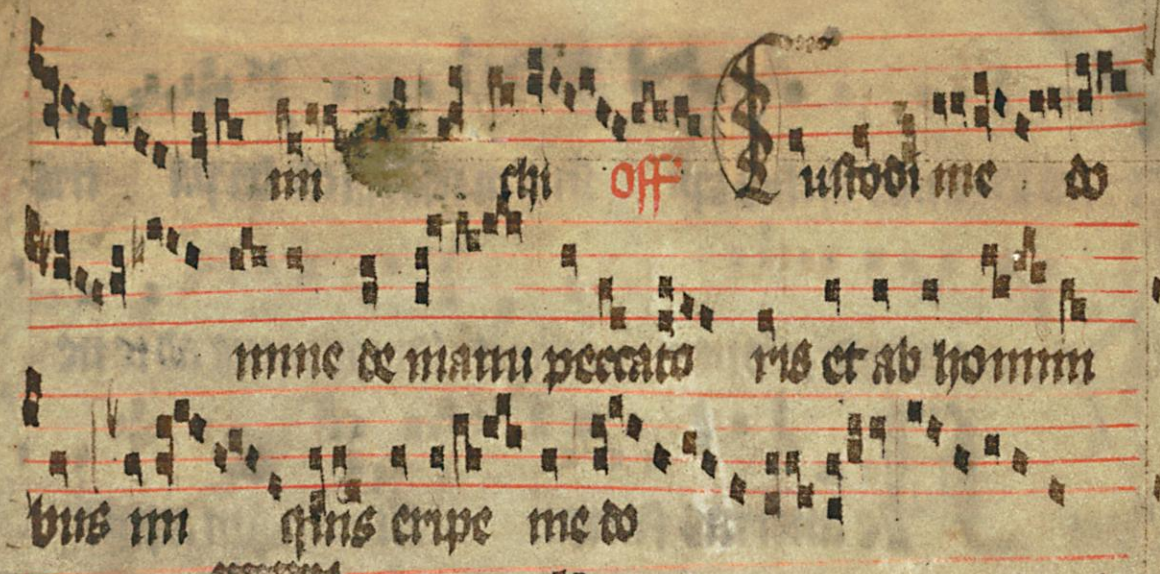 mi chi off Custodi me do
mine de manu peccato ris et ab homini
bus ini quis eripe me do